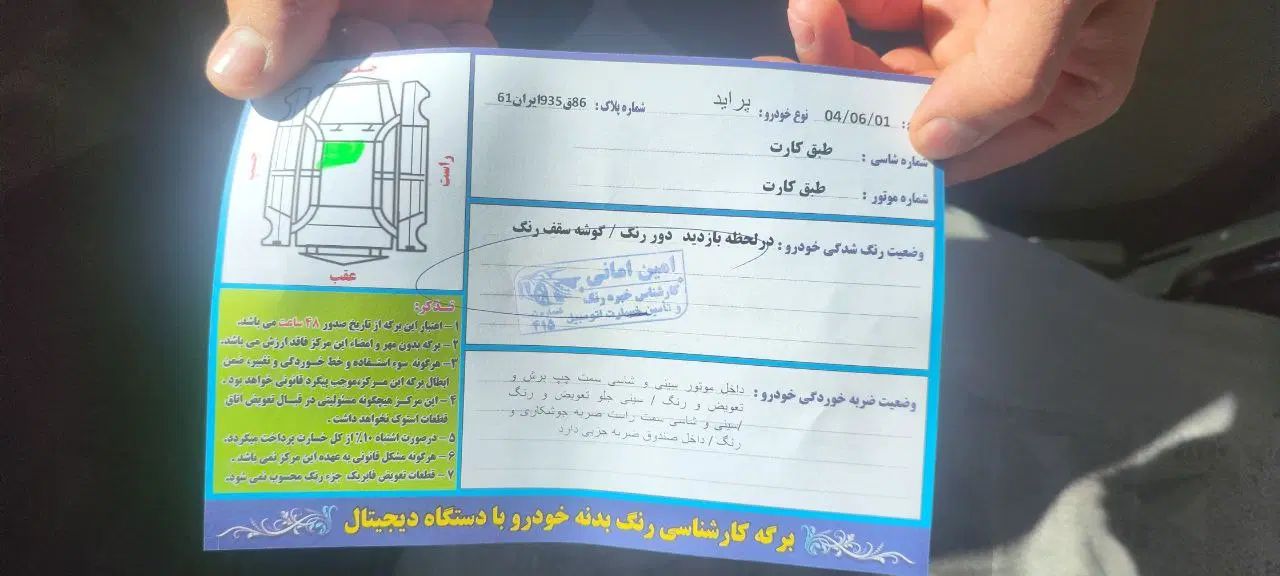 04/06/01 نوع خودرو : پراید شماره پلاک : 86ق935ایران61
شماره شاسی : طبق کارت
شماره موتور : طبق کارت
وضعیت رنگ شدگی خودرو : درلحظه بازدید دور رنگ / گوشه سقف رنگ
امین امانی
کارشناس خبره رنگ
و تامین خسارت اتومبیل
شماره
۴۱۵
وضعیت ضربه خوردگی خودرو : داخل موتور سینی و شاسی سمت چپ برش و
تعویض و رنگ / سینی جلو تعویض و رنگ
/سینی و شاسی سمت راست ضربه جوشکاری و
رنگ / داخل صندوق ضربه جزیی دارد
راست
چپ
عقب
تذکر:
۱- اعتبار این برگه از تاریخ صدور ۴۸ ساعت می باشد.
۲- برگه بدون مهر و امضاء این مرکز فاقد ارزش می باشد.
۳- هرگونه سوء استفاده و خط خوردگی و تغییر، ضمن
ابطال برگه این مرکز،موجب پیگرد قانونی خواهد بود .
۴- این مرکز هیچگونه مسئولیتی در قبال تعویض اتاق
قطعات استوک نخواهد داشت .
۵- درصورت اشتباه ۱۰٪ از کل خسارت پرداخت میگردد.
۶- هرگونه مشکل قانونی به عهده این مرکز نمی باشد .
۷- قطعات تعویض فابریک جزء رنگ محسوب نمی شود.
برگه کارشناسی رنگ بدنه خودرو با دستگاه دیجیتال